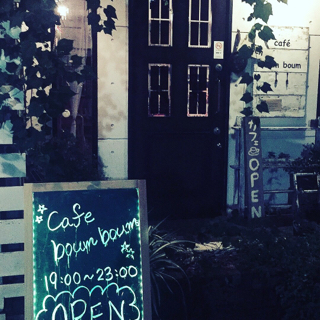 café
boum
カフェ OPEN
Cafe
boum boum
19:00~23:00
OPEN